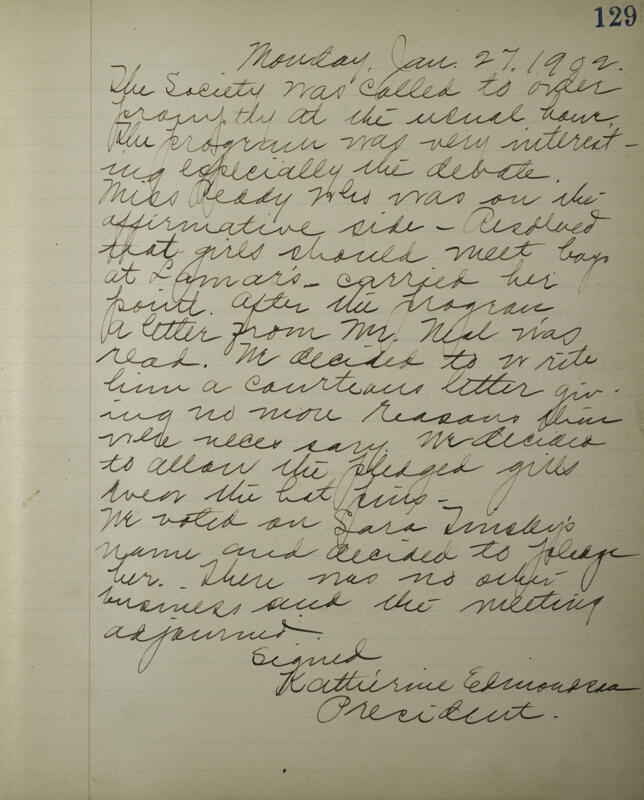 129
Monday, Jan. 27, 1902.
The Society was called to order
promptly at the usual hour.
The program was very interest-
ing especially the debate.
Miss Peddy who was on the
affirmative side - Resolved
that girls should meet boys
at Lamar's - carried her
point. After the program
a letter from Mr. Neal was
read. We decided to write
him a courteous letter giv-
ing no more reasons than
were necessary. We decided
to allow the pledged girls
wear the hat pins -
We voted on Sara Tinsley's
name and decided to pledge
her. There was no other
business and the meeting
adjourned.
Signed
Katherine Edmondson
President.